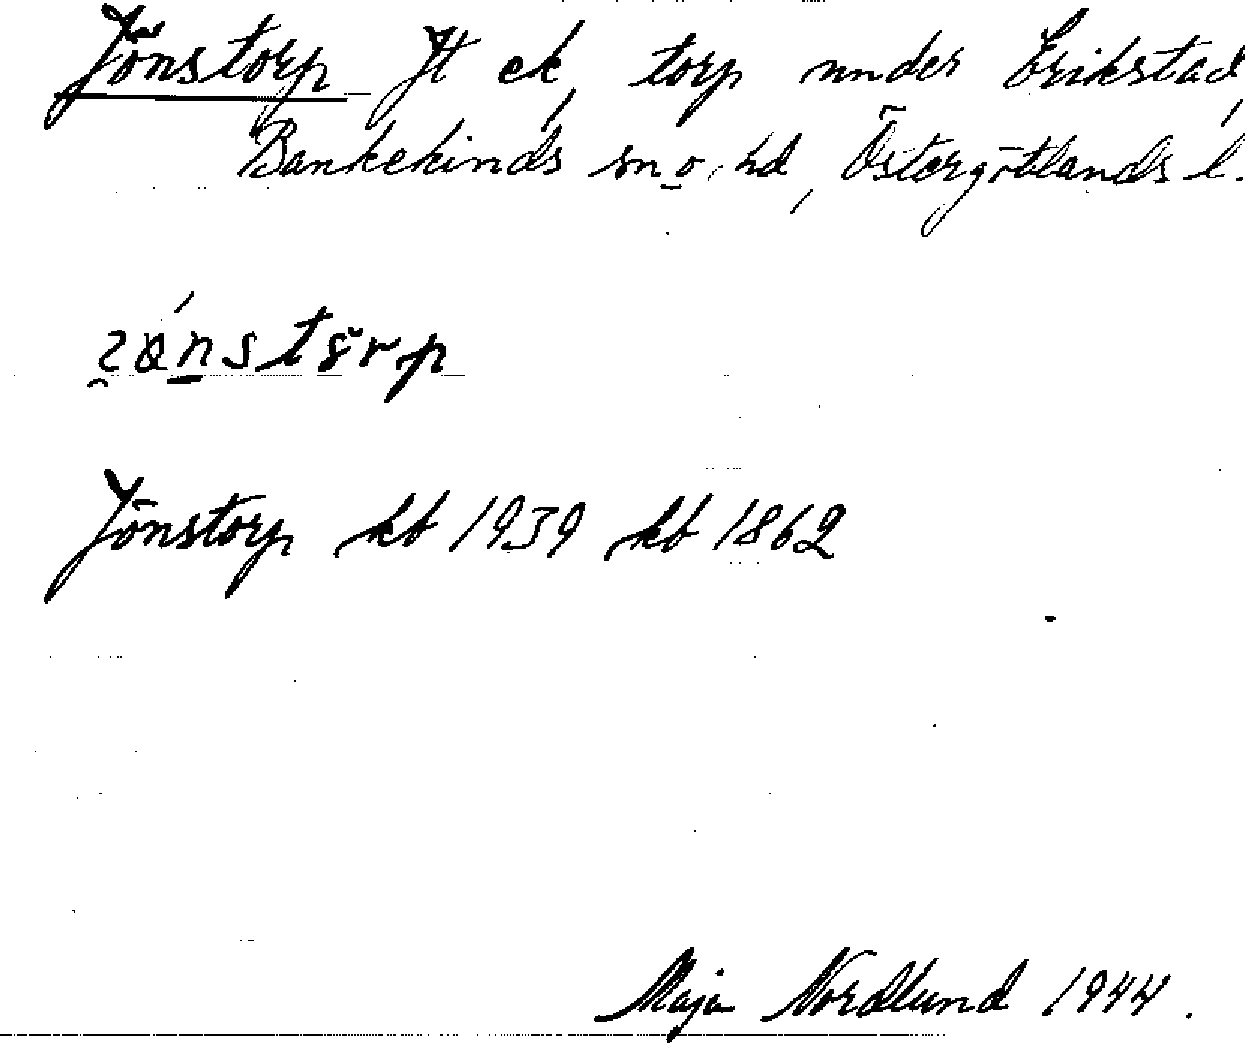 Jönstorp Jt ek, torp under Erikstad,
Bankekinds sn o. hd, Östergötlands l.
Jönstorp kb 1939 hb 1862
Maja Nordlund 1944.